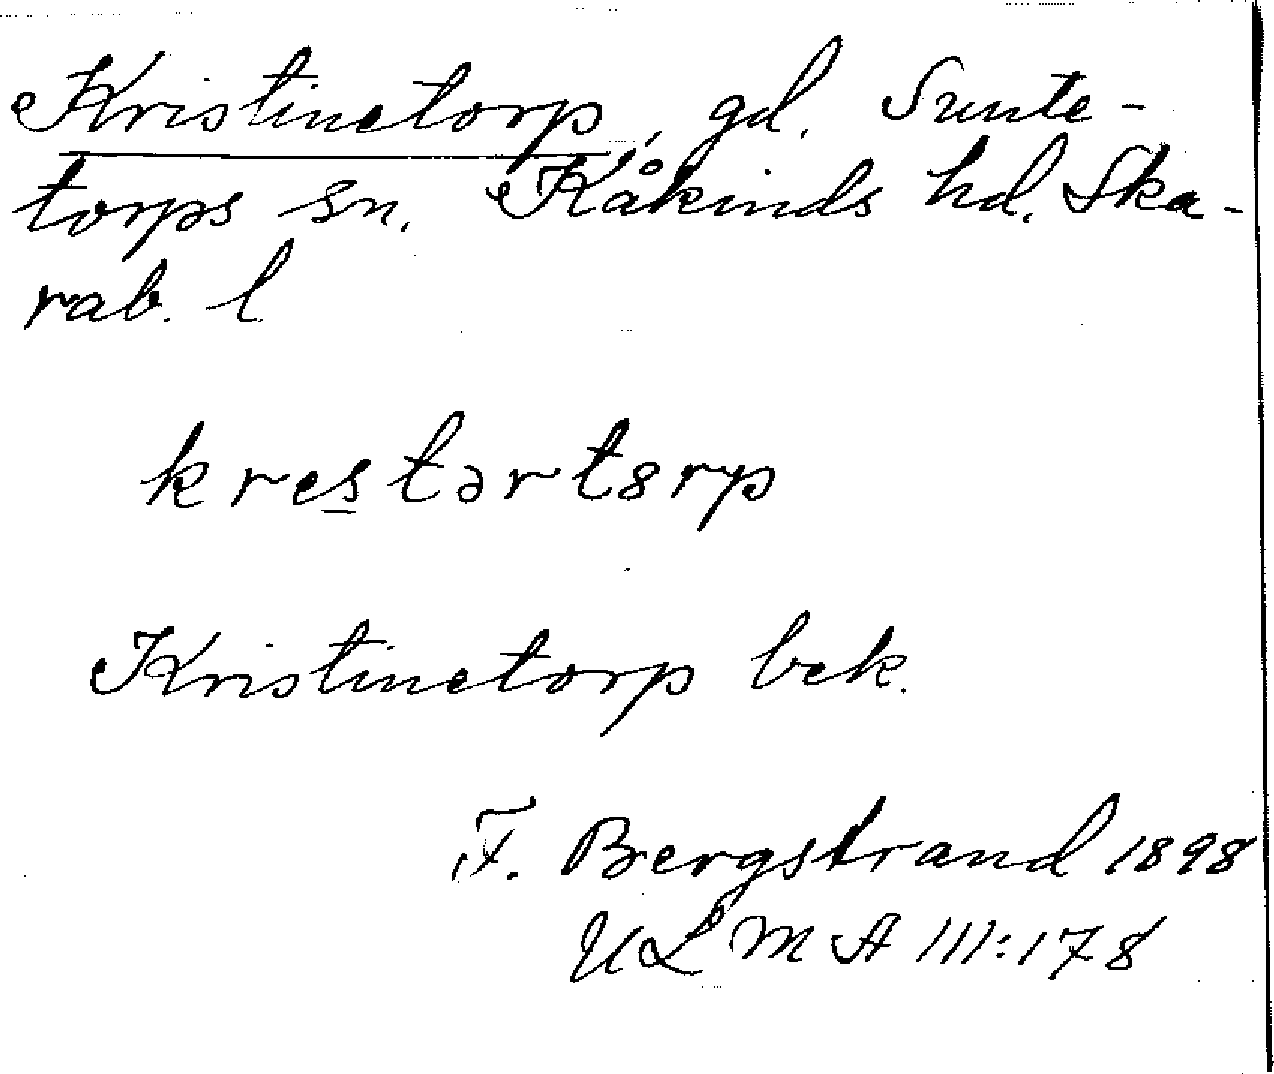 Kristinetorp, gd. Sunte-
torps sn. Kåkinds hd. Ska-
rab. l
kres̲tərtɞrp
Kristinetorp bek.
F. Bergstrand 1898
ULMA 111:178